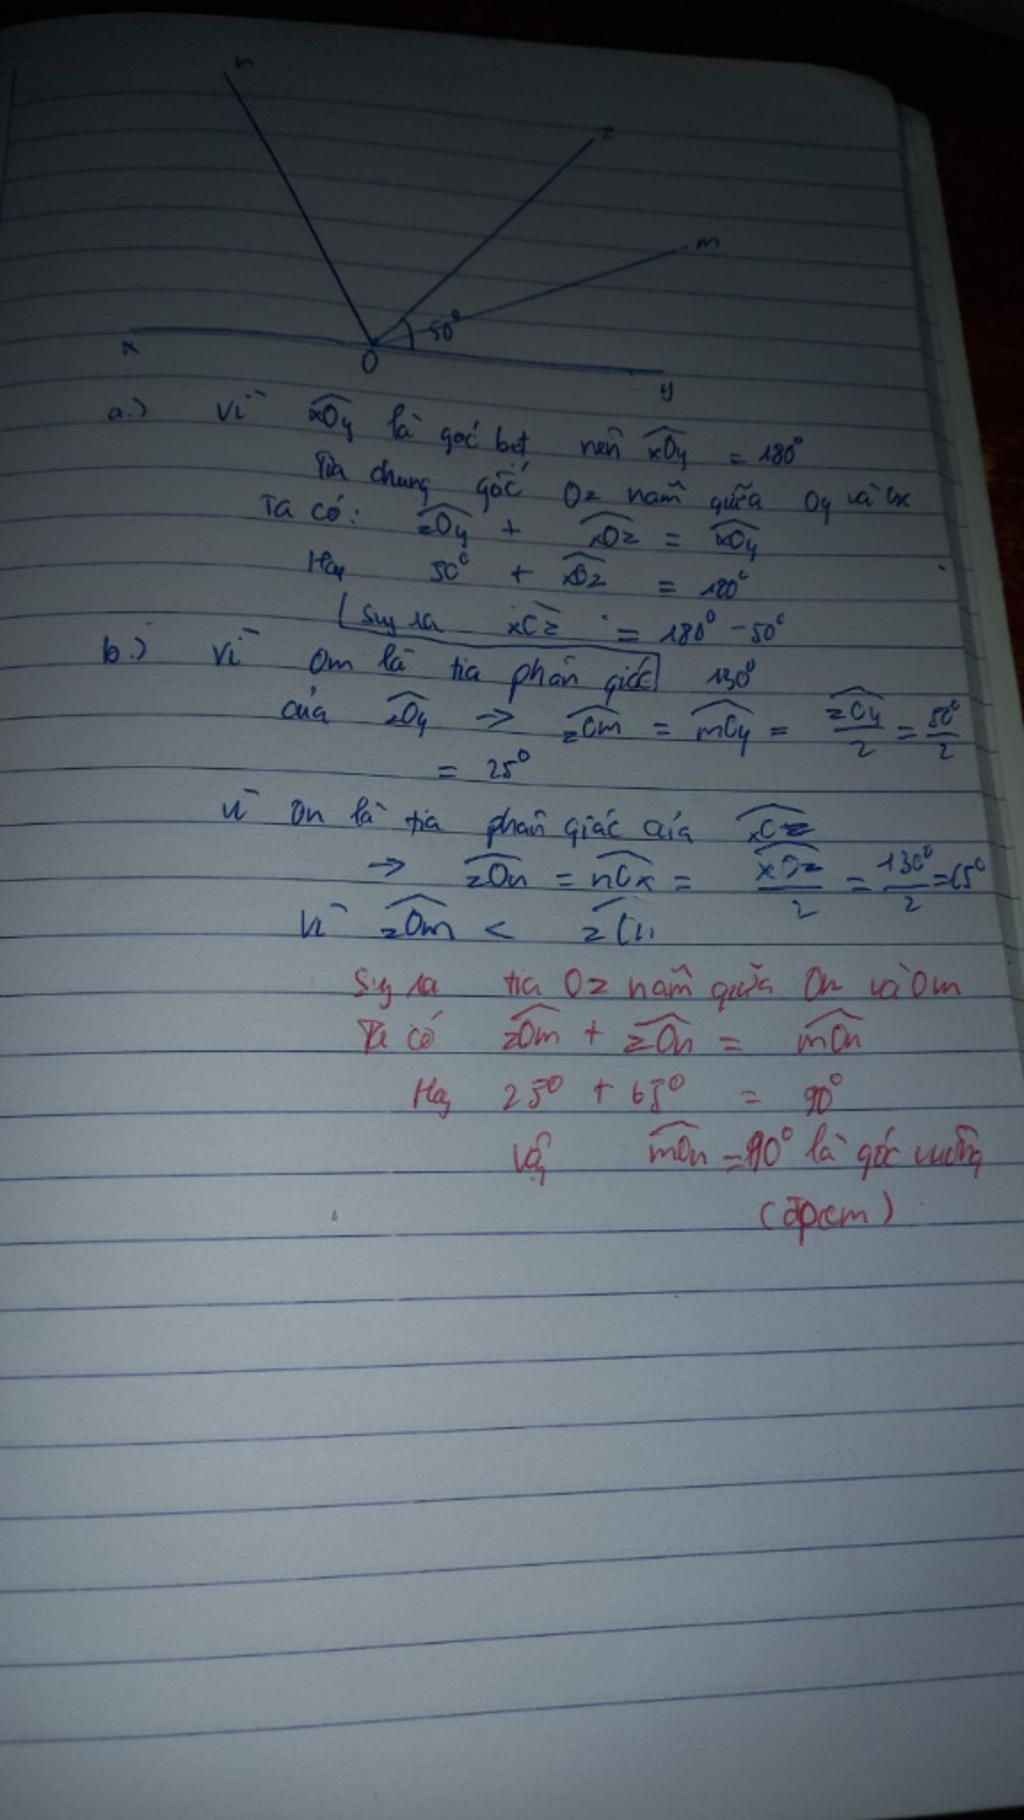 n
z
m
50°
x
O
y
a.) Vì xOy là góc bẹt nên xOy = 180°
Tia chung gốc Oz nằm giữa Oy và Ox
Ta có: zOy + xOz = xOy
Hay 50° + xOz = 180°
Suy ra xOz = 180° - 50°
130°
b.) Vì Om là tia phân giác
của zOy → zOm = mOy = zOy/2 = 50°/2
= 25°
Vì On là tia phân giác của xOz
→ zOn = nOx = xOz/2 = 130°/2 = 65°
Vì zOm < zOn
Suy ra tia Oz nằm giữa On và Om
Ta có zOm + zOn = mOn
Hay 25° + 65° = 90°
Vậy mOn = 90° là góc vuông
(đpcm)